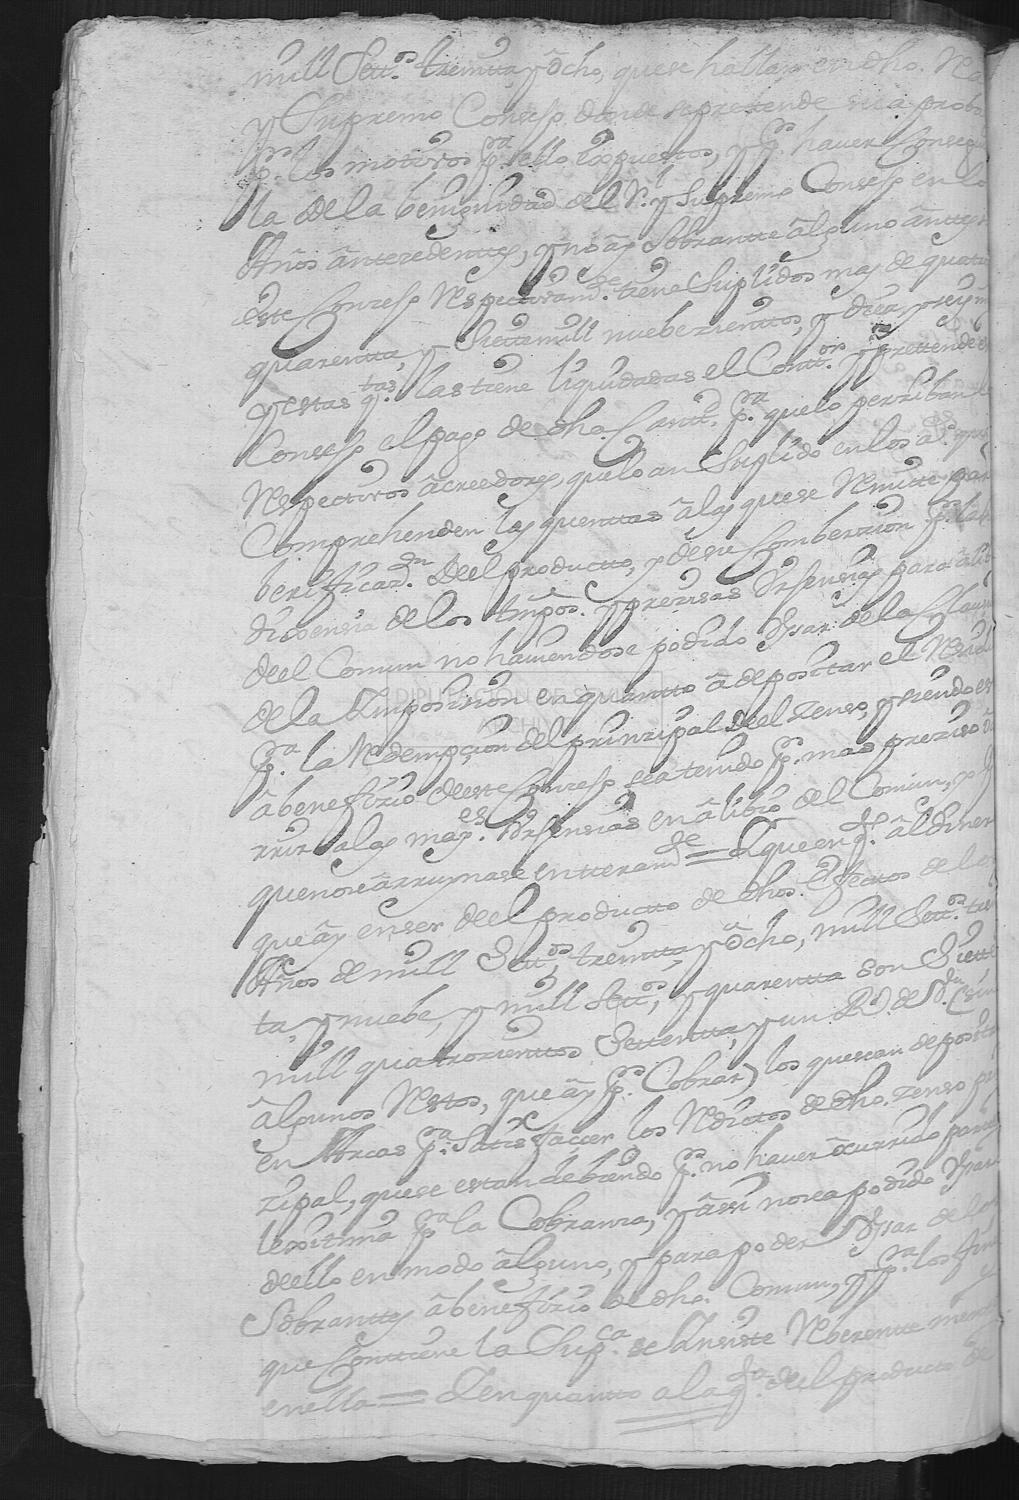 mill Sett.os treintta, y ôcho, que se hallan en dho. Rl.
y Supremo Consejo donde se prettende
p.r los motivos p.a ello expuestos, y p.r haver Consegui
la de la benignidad del R.l y Supremo Consejo en lo
Años ântezedenttes, y no ay Sobrantte âlguno ântte
este Conzejo Respectivam.te tiene Suplidos mas de quatro
quarentta, y Siettemill nuebezienttos, y diez y seis m
y estas q.tas las tiene liquidadas el Contt.or y prettende el
Conzejo el pago de dha. Cantt.d p.a que lo perziban l
Respectivos âcreedores que lo an Suplido en los a.s que
Comprehenden las quenttas â las que se Remitte para
berificaz.on deel productto, y de su Comberzion p.r la
de los tmpos. y prezisas Urjenzias para âlib
deel Comun no haviendose podido Usar de la Clausu
de la Ymposizion en quantto â deposittar el
DIPUTACIÓN DE
ARCHIVO
p.a la Redempçion del prinzipal deel zenso, y siendo es
âbenefizio deeste Conzejo se a tenido p.r mas prezisso
rrir a las may.es Urjenzias en âlibio del Comun, y p
que no se ârruynase entteram.te = Y que en q.to âl diner
que ây en ser de el productto de dhos. Efecttos de los
Años de mill Sett.os treintta, y ôcho, mill Sett.os trein
ta, y nuebe, y mill Sett.os, y quarentta son Siette
mill quattrozienttos Settentta, y un R.s de V.on (sin
âlgunos Resttos, que ây p.r Cobrar) los que sean deposita
en Arcas p.a Sattisfaçer los Redittos de dho. zenso prin
zipal, que se estan debiendo p.r no haver ôcurrido partte
lexitima p.a la Cobranza, y âssi no sea podido Usar
deello en modo âlguno, y para poder Usar de los
Sobranttes â benefizio de dho. Comun, y p.a los fines
que Conttiene la Sup.ca se Ynsiste Reberentte mentte
en ella = Y en quantto a la q.ta deel productto de